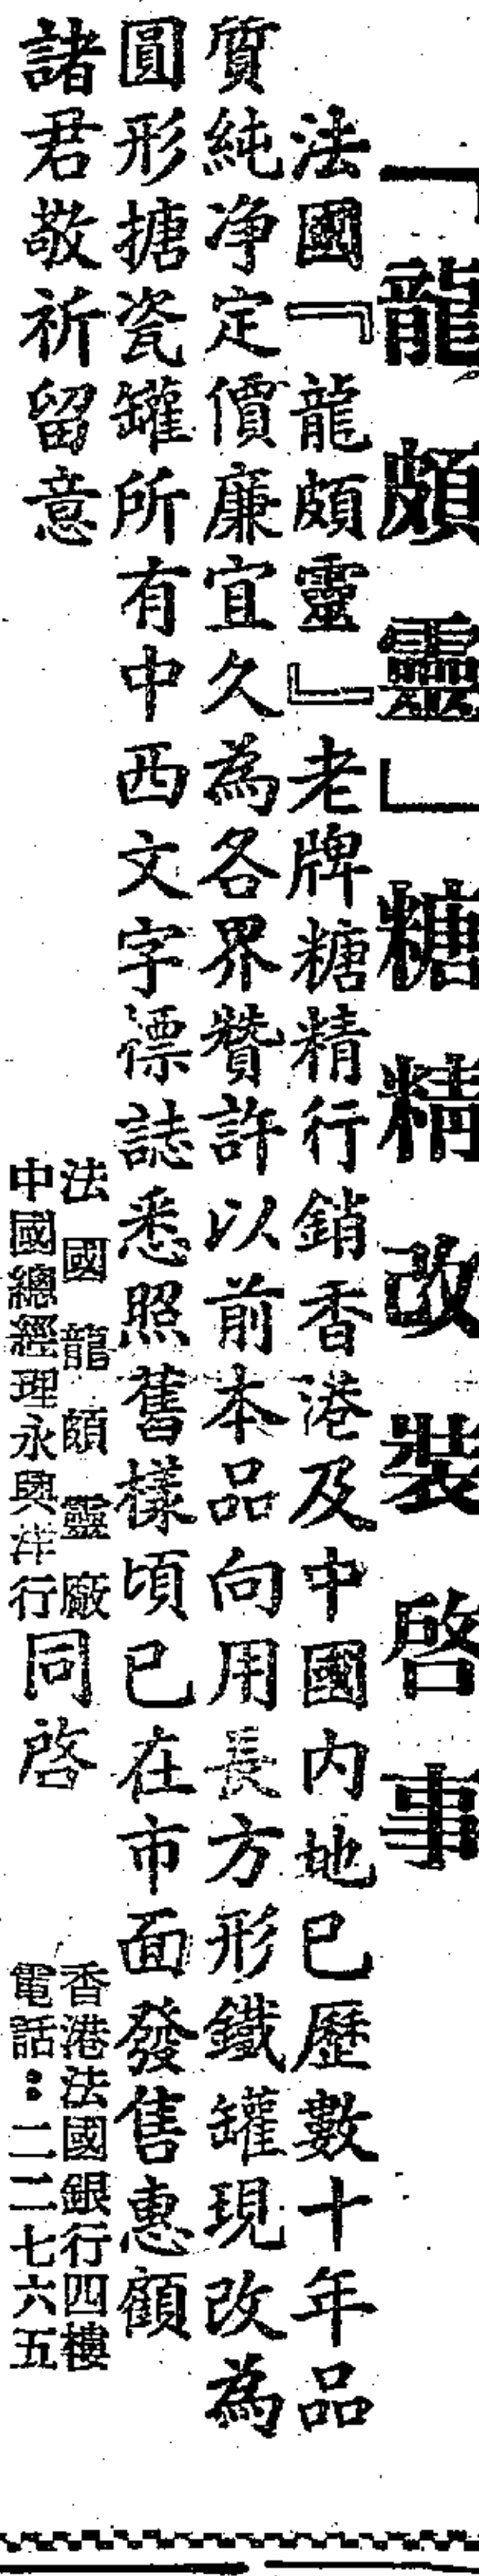 「龍頗靈」糖精改裝啓事
法國『龍頗靈』老牌糖精行銷香港及中國内地已歷數十年品
質純净定價廉宜久為各界贊許以前本品向用長方形鐵罐現改為
圓形搪瓷罐所有中西文字標誌悉照舊樣頃已在市面發售惠顧
諸君敬祈留意
法國龍頗靈廠
中國總經理永興洋行
同啓
香港法國銀行四樓
電話：二二七六五